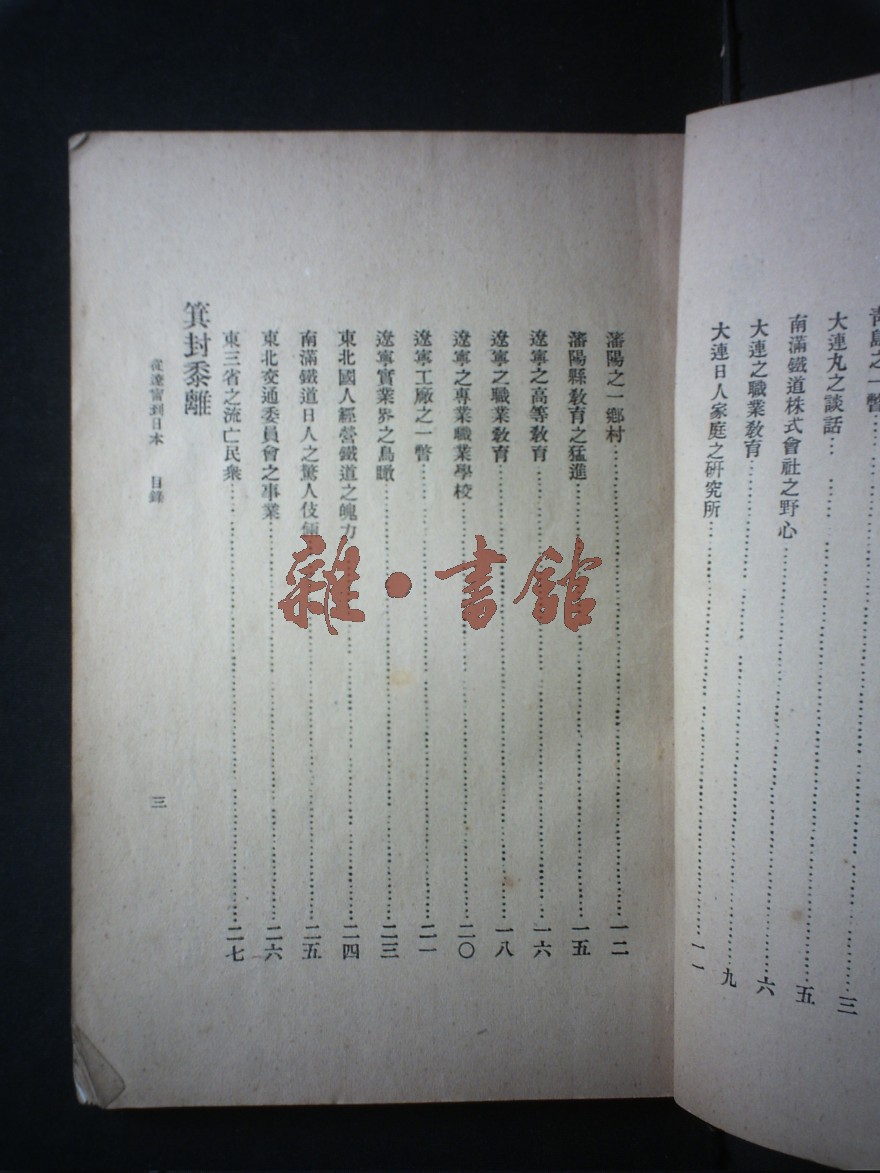 大連丸之談話 三
南滿鐵道株式會社之野心 五
大連之職業教育 六
大連日人家庭之研究所 九
一一
瀋陽之一鄉村 一二
瀋陽縣教育之猛進 一五
遼寧之高等教育 一六
遼寧之職業教育 一八
遼寧之專業職業學校 二〇
遼寧工廠之一瞥 二一
遼寧實業界之鳥瞰 二三
東北國人經營鐵道之魄力 二四
南滿鐵道日人之驚人伎倆 二五
東北交通委員會之事業 二六
東三省之流亡民衆 二七
箕封黍離
從遼寧到日本 目錄 三
雜·書館